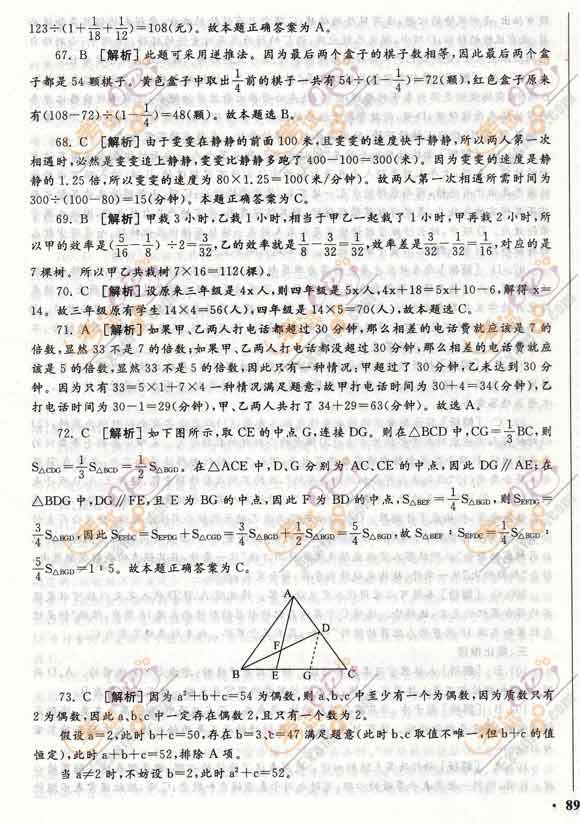 123÷(1+1/18+1/12)=108(元)。故本题正确答案为 A。
67. B [解析]此题可采用逆推法。因为最后两个盒子的棋子数相等,因此最后两个盒
子都是 54 颗棋子。黄色盒子中取出1/4前的棋子一共有 54÷(1-1/4)=72(颗),红色盒子原来
有(108-72)÷(1-1/4)=48(颗)。故本题选 B。
68. C [解析]由于雯雯在静静的前面 100 米,且雯雯的速度快于静静,所以两人第一次
相遇时,必然是雯雯追上静静,雯雯比静静多跑了 400-100=300(米)。因为雯雯的速度是静
静的 1.25 倍,所以雯雯的速度为 80×1.25=100(米/分钟)。故两人第一次相遇所需时间为
300÷(100-80)=15(分钟)。本题正确答案为 C。
69. B [解析]甲栽 3 小时,乙栽 1 小时,相当于甲乙一起栽了 1 小时,甲再栽 2 小时,所
以甲的效率是(5/16-1/8)÷2=3/32,乙的效率就是1/8-3/32=1/32,效率差是3/32-1/32=1/16,对应的是
7 棵树。所以甲乙共栽树 7×16=112(棵)。
70. C [解析]设原来三年级是 4x 人,则四年级是 5x 人,4x+18=5x+10-6,解得 x=
14。故三年级原有学生 14×4=56(人),四年级是 14×5=70(人),故本题选 C。
71. A [解析]如果甲、乙两人打电话都超过 30 分钟,那么相差的电话费就应该是 7 的
倍数,显然 33 不是 7 的倍数;如果甲、乙两人打电话都没超过 30 分钟,那么相差的电话费就应
该是 5 的倍数,显然 33 不是 5 的倍数,因此只有一种情况:甲超过了 30 分钟,乙未达到 30 分
钟。因为只有 33=5×1+7×4 一种情况满足题意,故甲打电话时间为 30+4=34(分钟),乙
打电话时间为 30-1=29(分钟),甲、乙两人共打了 34+29=63(分钟)。故选 A。
72. C [解析]如下图所示,取 CE 的中点 G,连接 DG。则在△BCD 中,CG=1/3BC,则
S△CDG=1/3S△BCD=1/2S△BGD。在△ACE 中,D、G 分别为 AC、CE 的中点,因此 DG∥AE;在
△BDG 中,DG∥FE,且 E 为 BG 的中点,因此 F 为 BD 的中点,S△BEF=1/4S△BGD,则 SEFDG=
3/4S△BGD,因此 SEFDC=SEFDG+S△CGD=3/4S△BGD+1/2S△BGD=5/4S△BGD,故 S△BEF∶SEFDC=1/4S△BGD∶
5/4S△BGD=1∶5。故本题答案为 C。
A
D
F
B E G C
73. C [解析]因为 a²+b+c=54 为偶数,则 a、b、c 中至少有一个为偶数,因为质数只有
2 为偶数,因此 a、b、c 中一定存在偶数 2,且只有一个数为 2。
假设 a=2,此时 b+c=50,存在 b=3,c=47 满足题意(此时 b、c 取值不唯一,但 b+c 的值
恒定),此时 a+b+c=52,排除 A 项。
当 a≠2 时,不妨设 b=2,此时 a²+c=52。
· 89